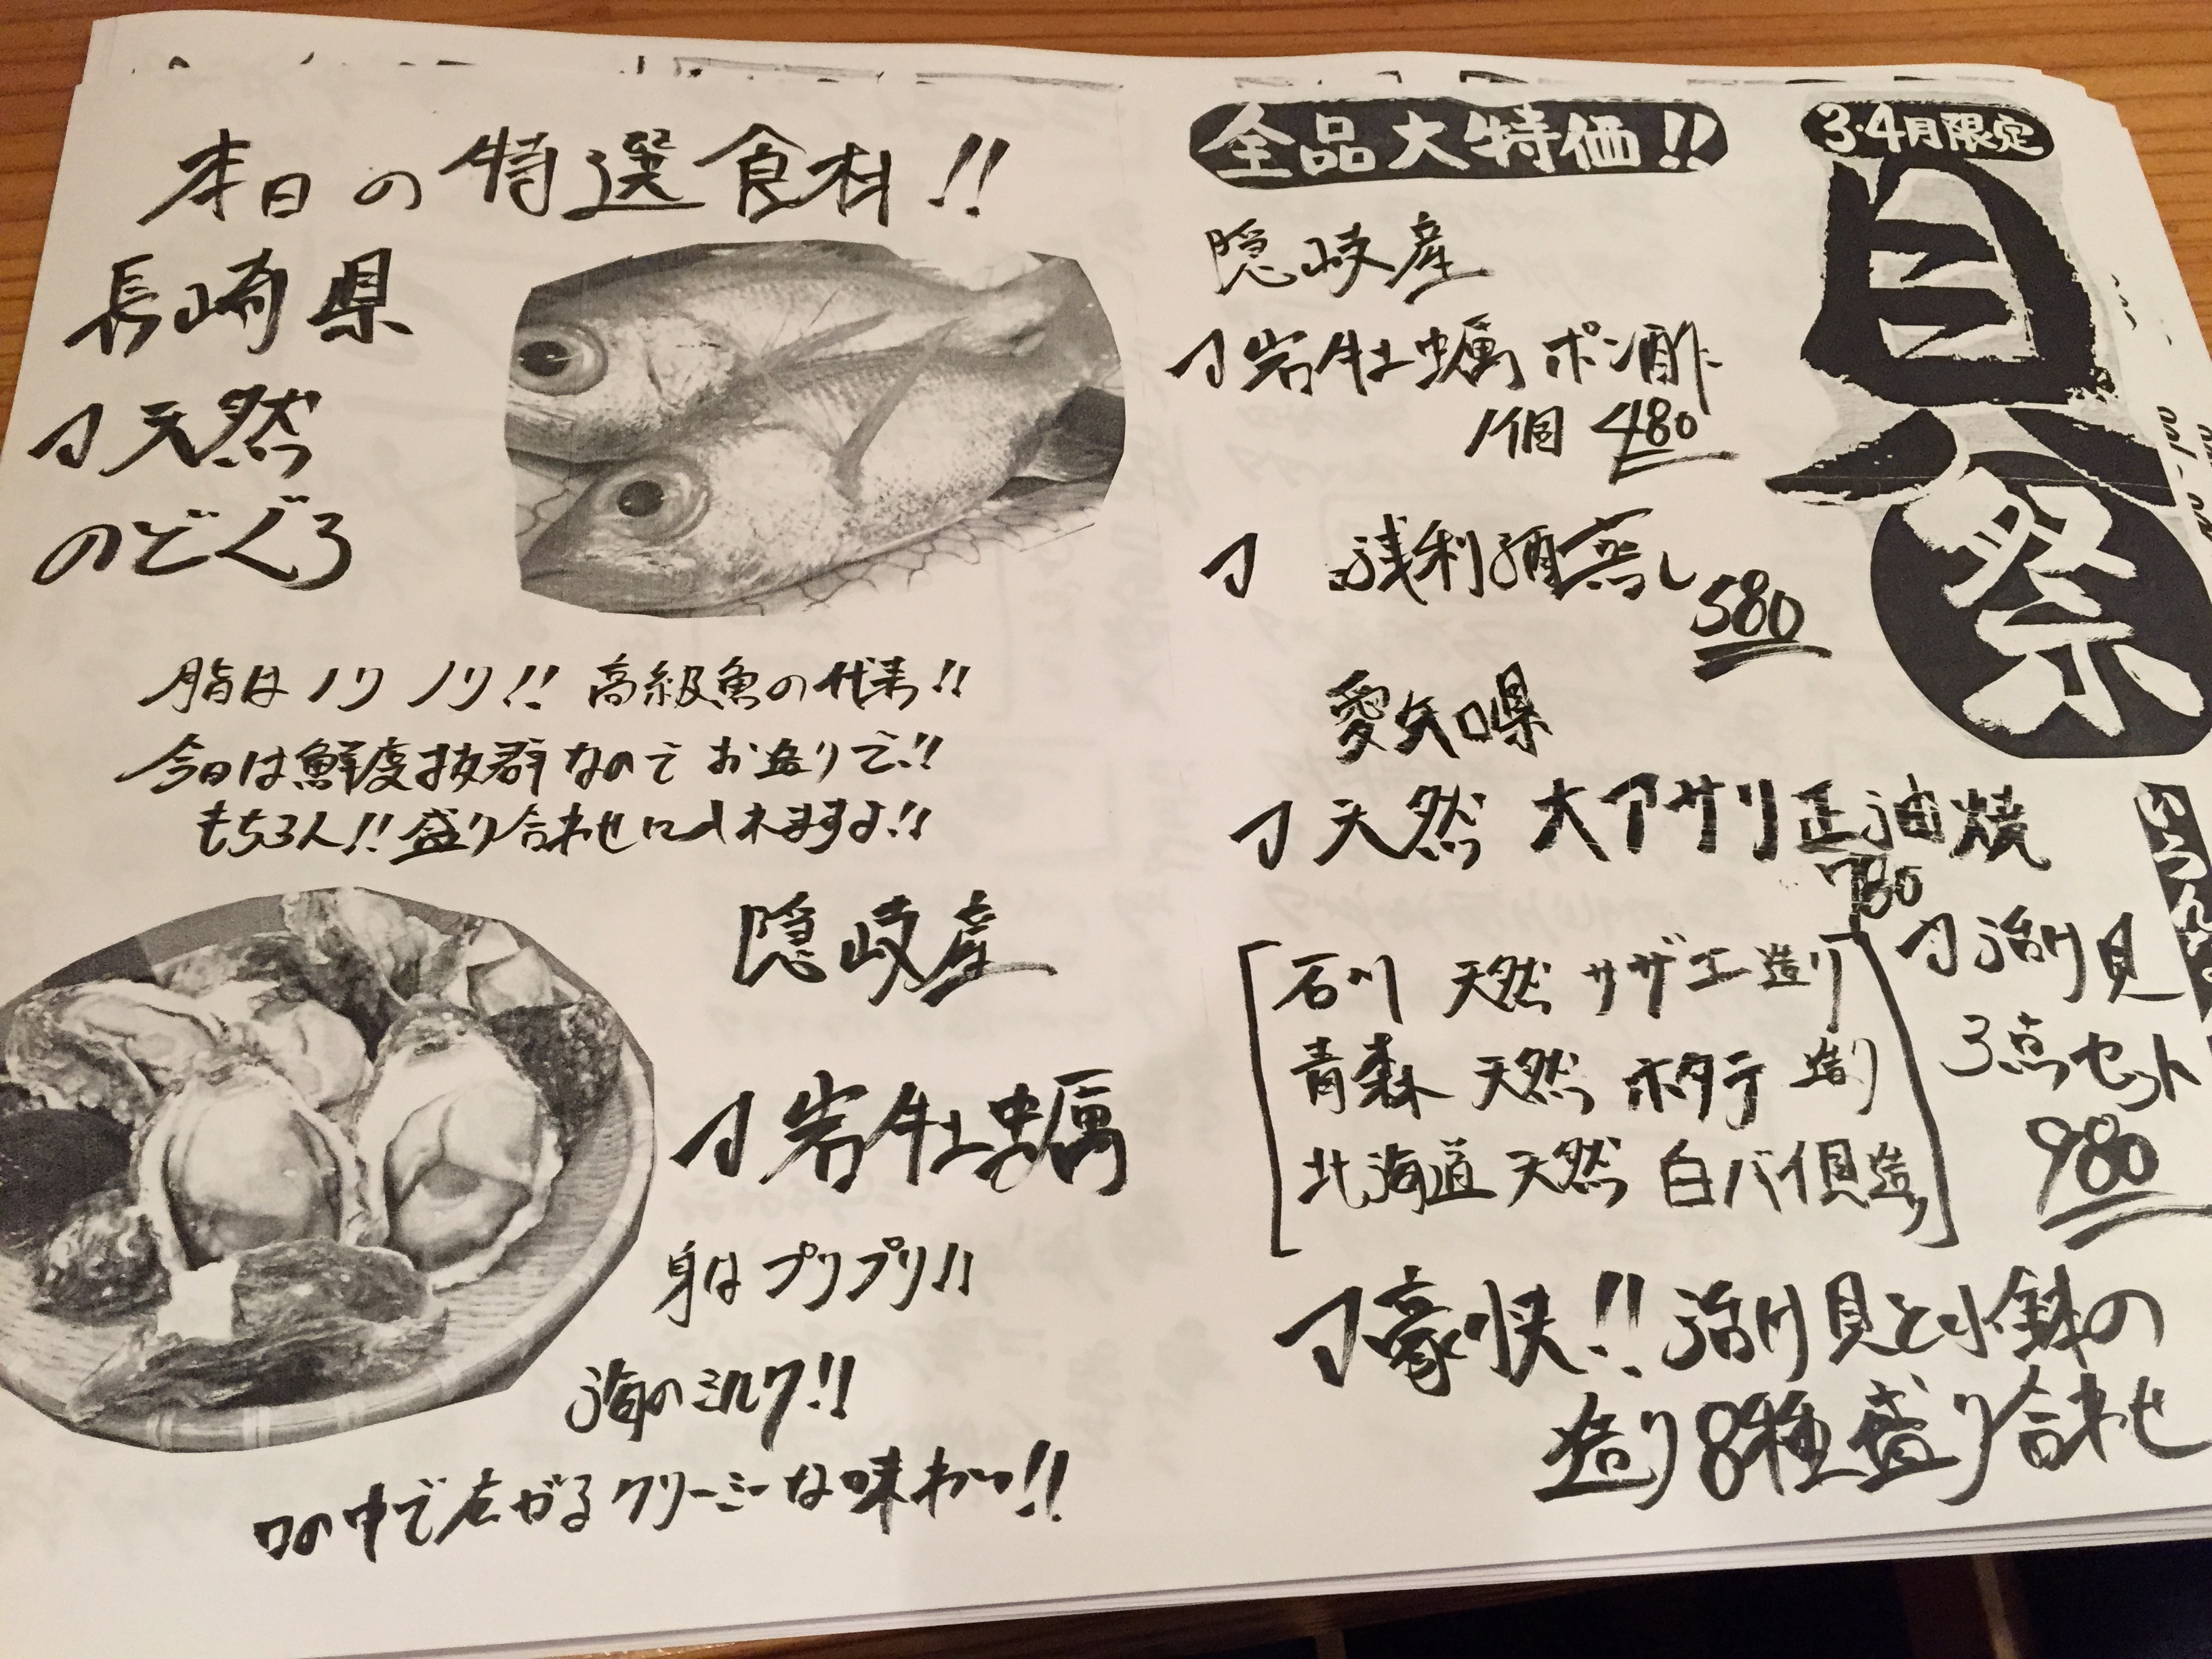 本日の特選食材!!
長崎県
天然
のどぐろ
脂はノリノリ!! 高級魚の代表!!
今日は鮮度抜群なのでお造りで!!
もちろん!!盛り合わせに入れますよ!!
隠岐産
岩牡蠣
身はプリプリ!!
海のミルク!!
口の中で広がるクリーミーな味わい!!
3・4月限定
貝祭
全品大特価!!
隠岐産
岩牡蠣ポン酢
1個 480
浅利酒蒸し
580
愛知県
天然 大アサリ正油焼
780
活け貝
3点セット
980
石川 天然 サザエ造り
青森 天然 ホタテ 造り
北海道 天然 白バイ貝造り
豪快!!活け貝と小鉢の
造り8種盛り合わせ